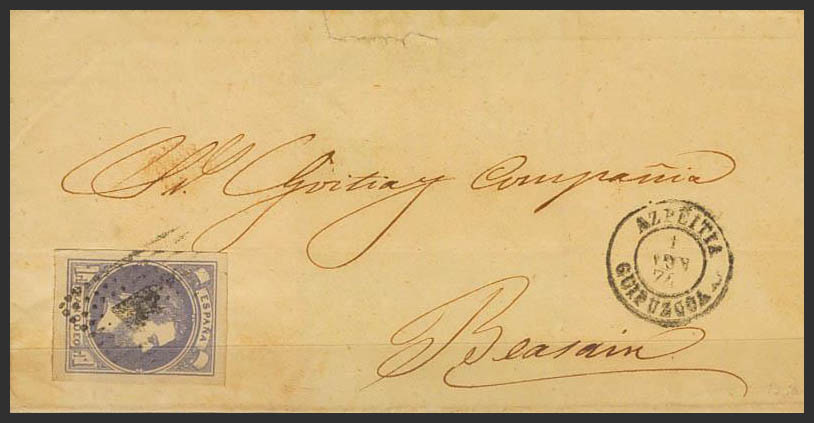 Sr. Goitia y Compañia
Beasain
AZPEITIA
1
74
GUIPUZCOA
ESPAÑA